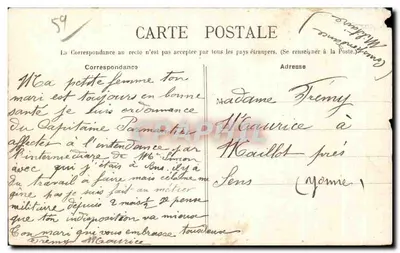 59
CARTE POSTALE
Correspondance
Militaire
La Correspondance au recto n'est pas acceptée par tous les pays étrangers. (Se renseigner à la Poste.)
Correspondance
Adresse
Ma petite femme ton
mari est toujours en bonne
santé je suis ordonnance
du Capitaine
affecté à l'intendance par
l'intermédiaire de Mr Simon
avec qui j'étais à il y a
du travail a faire mais
pas je suis fait au métier
militaire depuis 2 mois je pense
que ton indisposition va mieux
Ton mari qui vous embrasse
Frémy Maurice
Madame Frémy
Maurice à
Maillot près
Sens (Yonne)